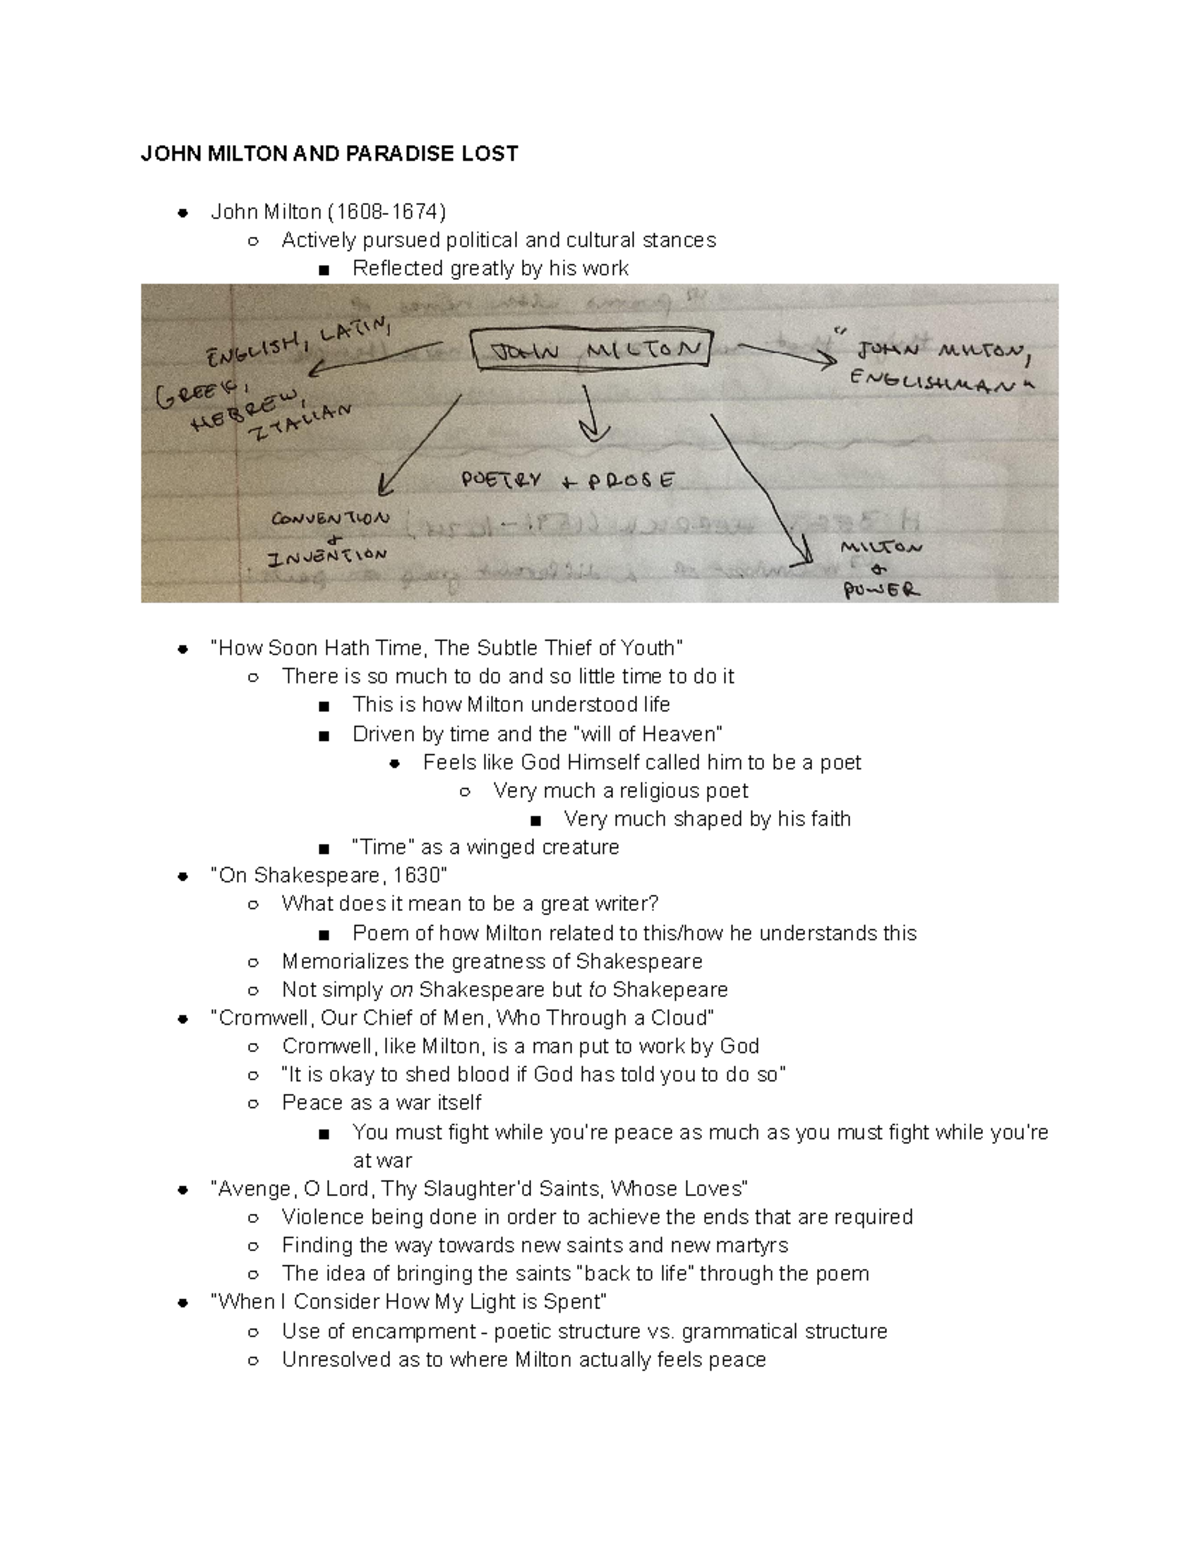 JOHN MILTON AND PARADISE LOST
● John Milton (1608-1674)
○ Actively pursued political and cultural stances
■ Reflected greatly by his work
ENGLISH, LATIN,
GREEK,
HEBREW,
ITALIAN
JOHN MILTON
"JOHN MILTON,
ENGLISHMAN"
POETRY + PROSE
CONVENTION
+
INVENTION
MILTON
+
POWER
● "How Soon Hath Time, The Subtle Thief of Youth"
○ There is so much to do and so little time to do it
■ This is how Milton understood life
■ Driven by time and the "will of Heaven"
● Feels like God Himself called him to be a poet
○ Very much a religious poet
■ Very much shaped by his faith
■ "Time" as a winged creature
● "On Shakespeare, 1630"
○ What does it mean to be a great writer?
■ Poem of how Milton related to this/how he understands this
○ Memorializes the greatness of Shakespeare
○ Not simply on Shakespeare but to Shakepeare
● "Cromwell, Our Chief of Men, Who Through a Cloud"
○ Cromwell, like Milton, is a man put to work by God
○ "It is okay to shed blood if God has told you to do so"
○ Peace as a war itself
■ You must fight while you're peace as much as you must fight while you're
at war
● "Avenge, O Lord, Thy Slaughter'd Saints, Whose Loves"
○ Violence being done in order to achieve the ends that are required
○ Finding the way towards new saints and new martyrs
○ The idea of bringing the saints "back to life" through the poem
● "When I Consider How My Light is Spent"
○ Use of encampment - poetic structure vs. grammatical structure
○ Unresolved as to where Milton actually feels peace